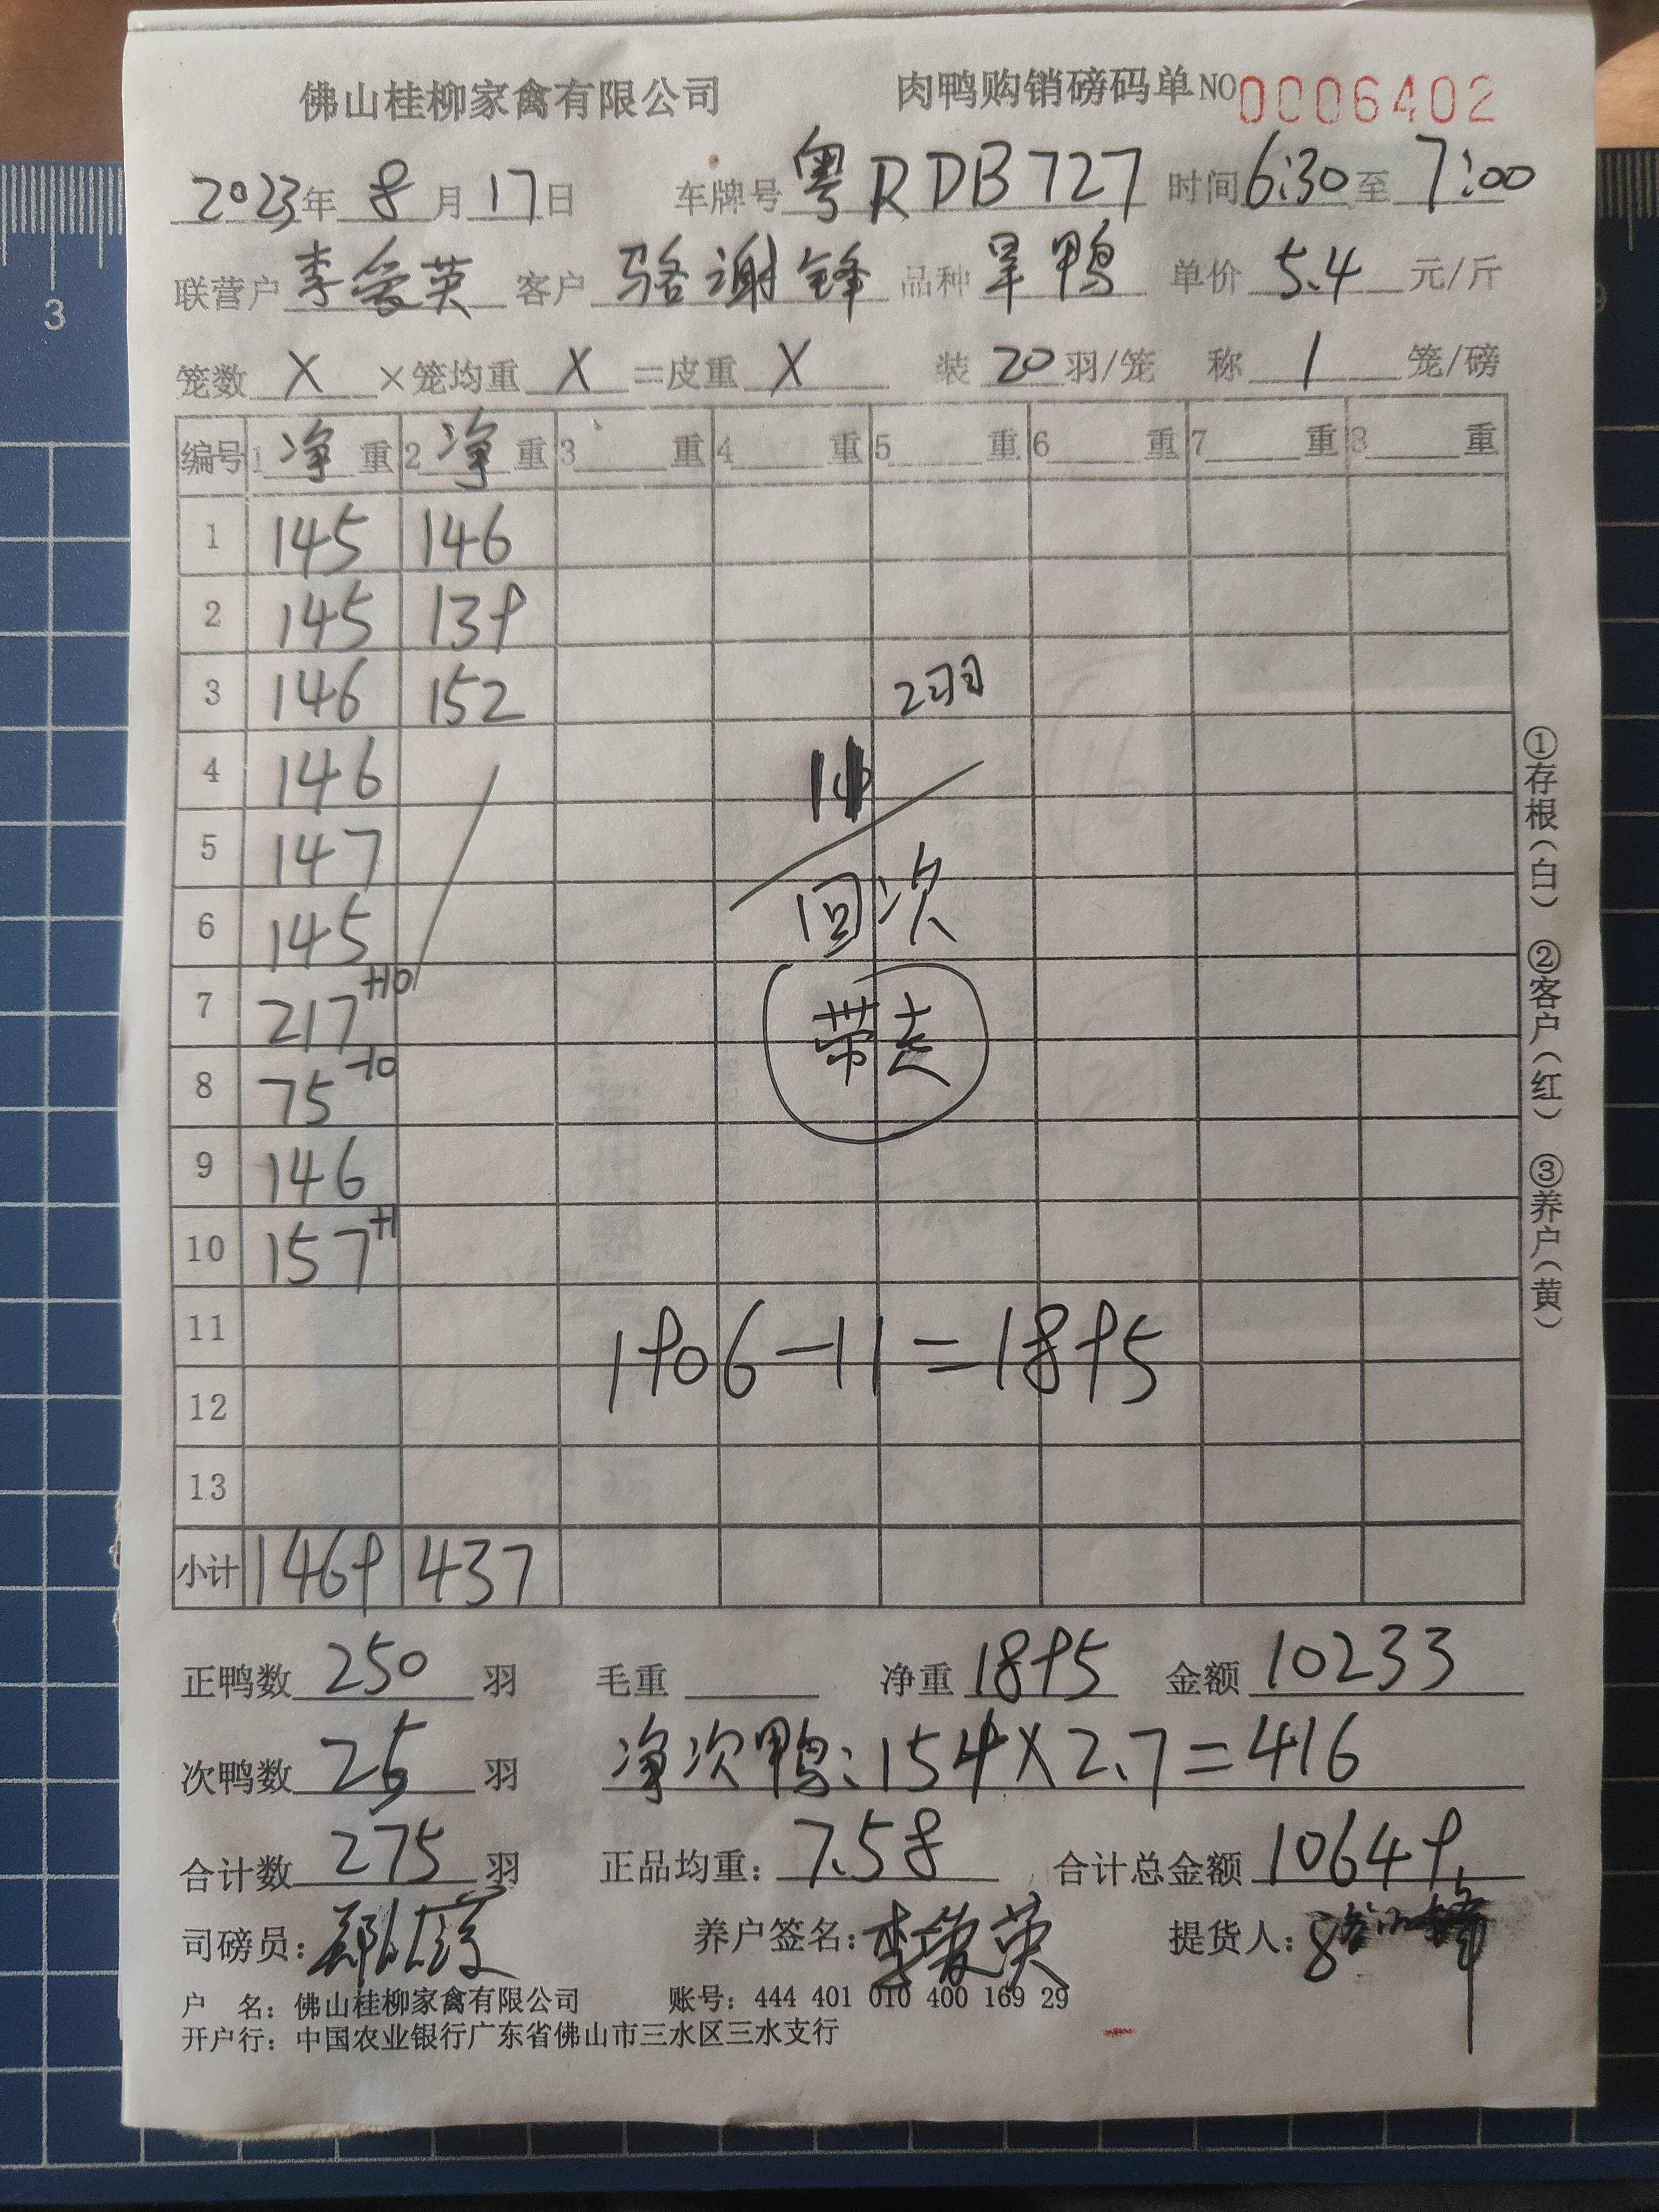 佛山桂柳家禽有限公司 肉鸭购销磅码单 NO 0006402
2023年 8 月 17 日 车牌号 粤RDB727 时间 6:30 至 7:00
联营户 李爱英 客户 骆谢锋 品种 旱鸭 单价 5.4 元/斤
笼数 X ×笼均重 X =皮重 X 装 20 羽/笼 称 1 笼/磅
编号 1 净 重 2 净 重 3 重 4 重 5 重 6 重 7 重 8 重
1 145 146
2 145 139
3 146 152 2羽
4 146
5 147
6 145 回次
7 217 +10 带走
8 75 -10
9 146
10 157 +1
11 1906-11=1895
12
13
小计 1469 437
正鸭数 250 羽 毛重 净重 1895 金额 10233
次鸭数 25 羽 净次鸭:154X2.7=416
合计数 275 羽 正品均重: 7.58 合计总金额 10649
司磅员: 养户签名: 李爱英 提货人:
户 名: 佛山桂柳家禽有限公司 账号: 444 401 010 400 169 29
开户行: 中国农业银行广东省佛山市三水区三水支行
①存根(白) ②客户(红) ③养户(黄)
3